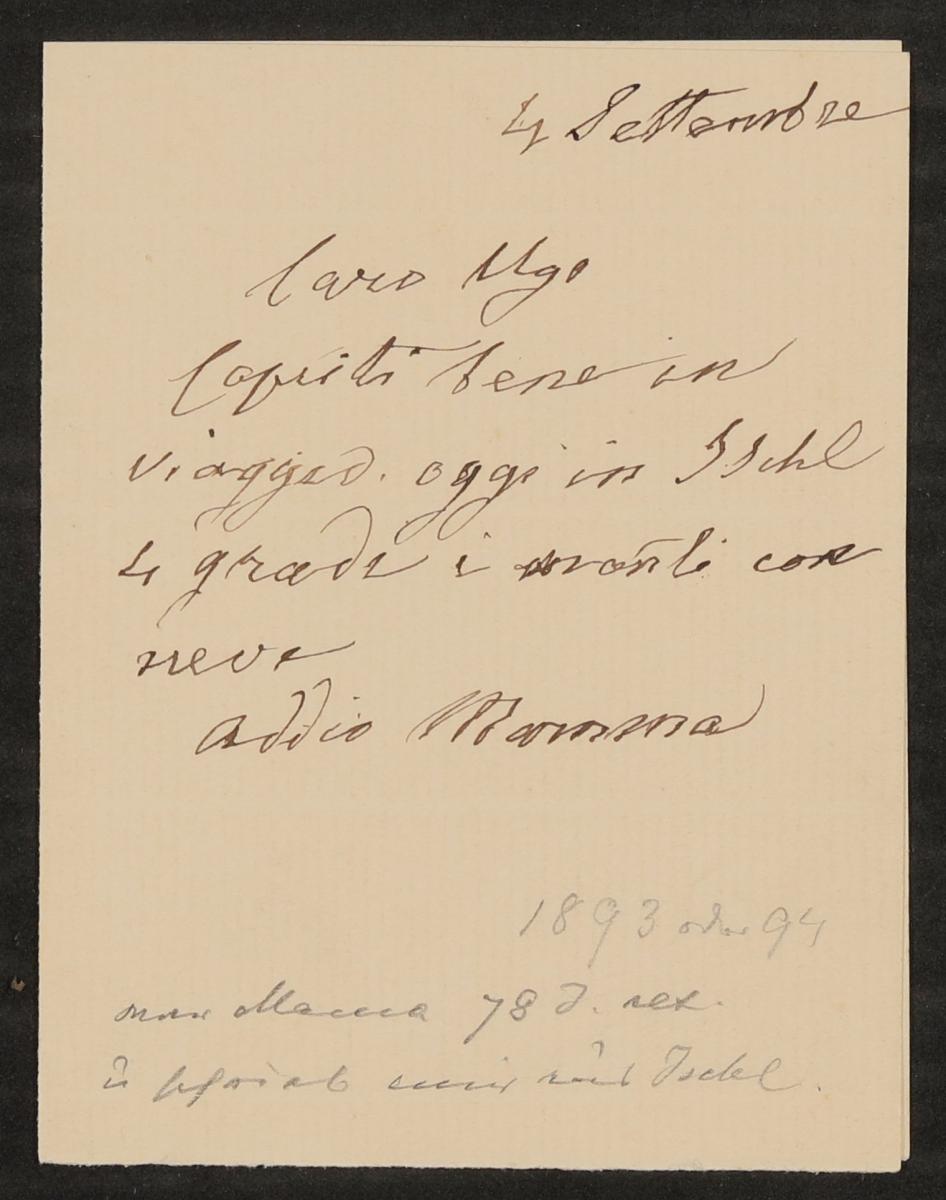 4 Settembre
Caro Ugo
Copriti bene in
viaggio. oggi in Ischl
4 gradi i monti con
neve
addio Mamma
1893 oder 94
Mama 78 J. alt
u schrieb mir aus Ischl.